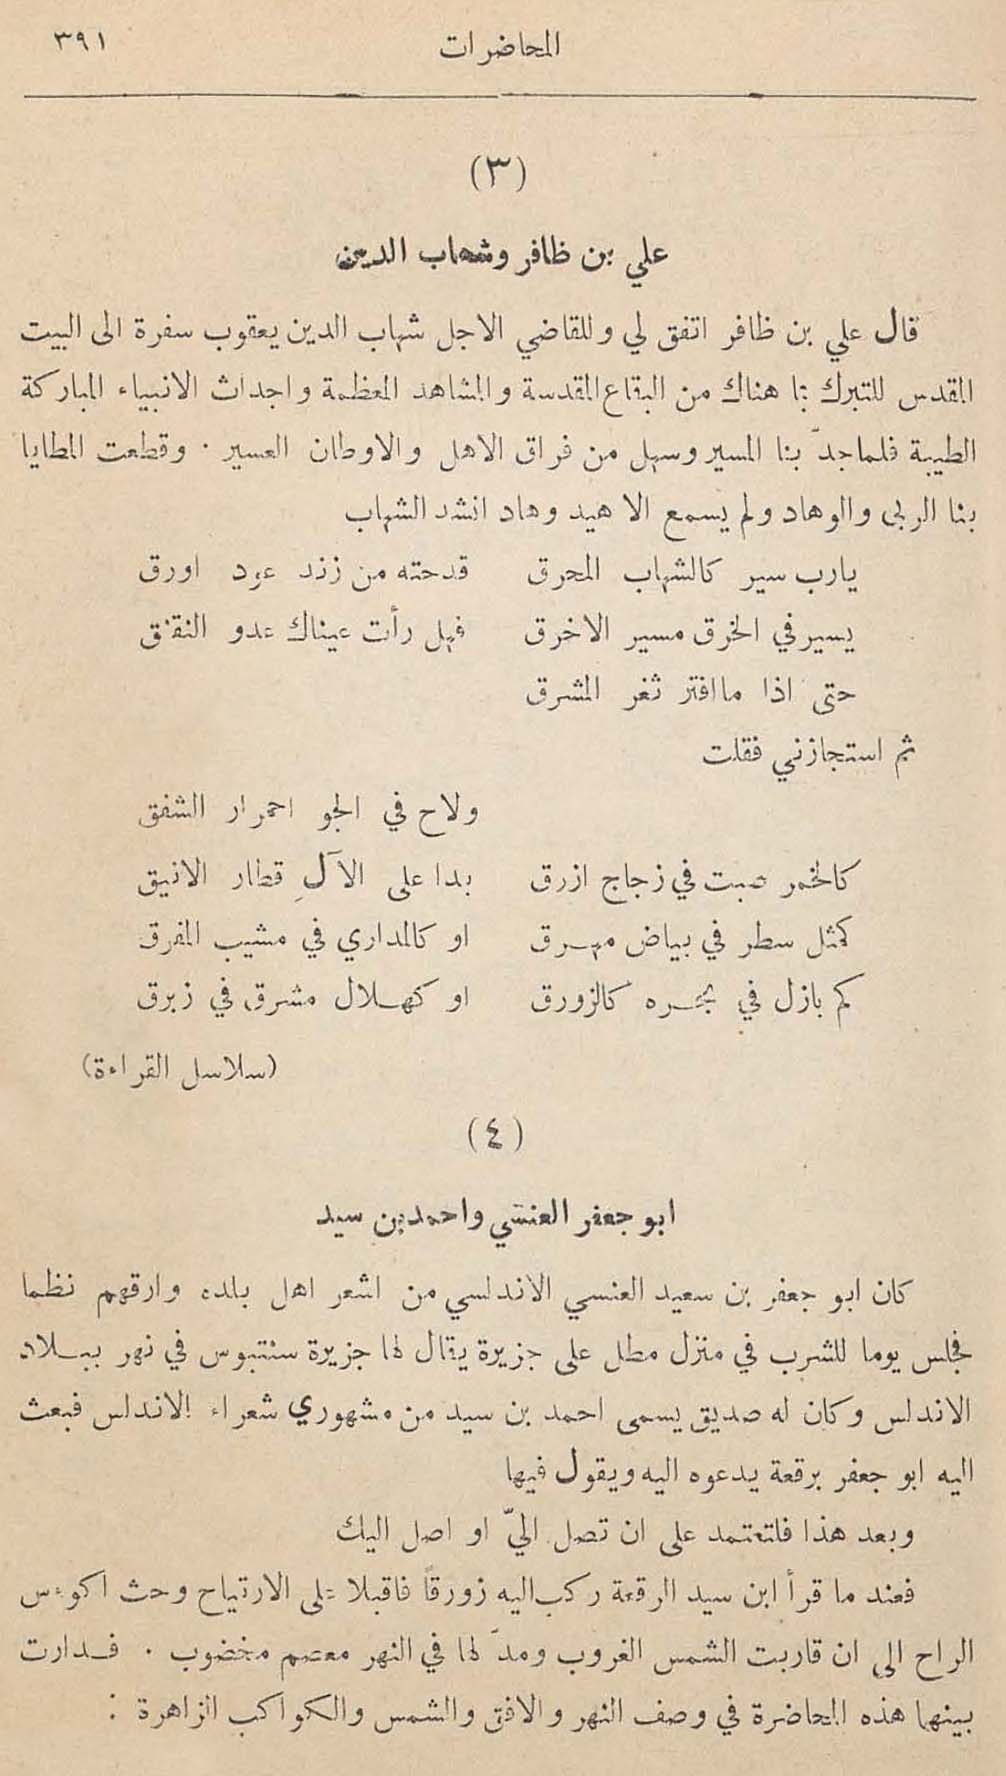 المحاضرات ٣٩١
(٣)
علي بن ظافر وشهاب الدين
قال علي بن ظافر اتفق لي وللقاضي الاجل شهاب الدين يعقوب سفرة الى البيت
المقدس للتبرك بما هناك من البقاع المقدسة والمشاهد المعظمة واجداث الانبياء المباركة
الطيبة فلما جدّ بنا المسير وسهل من فراق الاهل والاوطان العسير · وقطعت المطايا
بنا الربى والوهاد ولم يسمع الا هيد وهاد انشد الشهاب
يارب سير كالشهاب المحرق قدحته من زند عود اورق
يسير في الخرق مسير الاخرق فهل رأت عيناك عدو النقنق
حتى اذا ما افتر ثغر المشرق
ثم استجازني فقلت
ولاح في الجو احمرار الشفق
كالخمر صبت في زجاج ازرق بدا على الآلِ قطار الانيق
كمثل سطر في بياض مهرق او كالمداري في مشيب المفرق
كم بازل في بحره كالزورق او كهلال مشرق في زبرق
(سلاسل القراءة)
(٤)
ابو جعفر العنسي واحمد بن سيد
كان ابو جعفر بن سعيد العنسي الاندلسي من اشعر اهل بلده وارقهم نظما
فجلس يوما للشرب في منزل مطل على جزيرة يقال لها جزيرة سنتبوس في نهر ببلاد
الاندلس وكان له صديق يسمى احمد بن سيد من مشهوري شعراء الاندلس فبعث
اليه ابو جعفر برقعة يدعوه اليه ويقول فيها
وبعد هذا فلتعتمد على ان تصل اليّ او اصل اليك
فعند ما قرأ ابن سيد الرقعة ركب اليه زورقًا فاقبلا على الارتياح وحث اكوءس
الراح الى ان قاربت الشمس الغروب ومدّ لها في النهر معصم مخضوب · فدارت
بينهما هذه المحاضرة في وصف النهر والافق والشمس والكواكب الزاهرة :